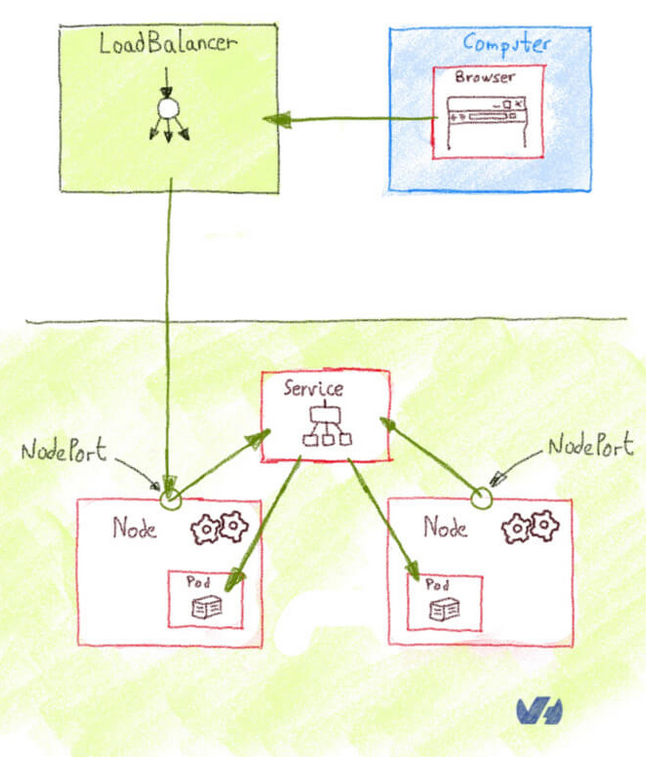 LoadBalancer
Computer
Browser
Service
NodePort
NodePort
Node
Node
Pod
Pod